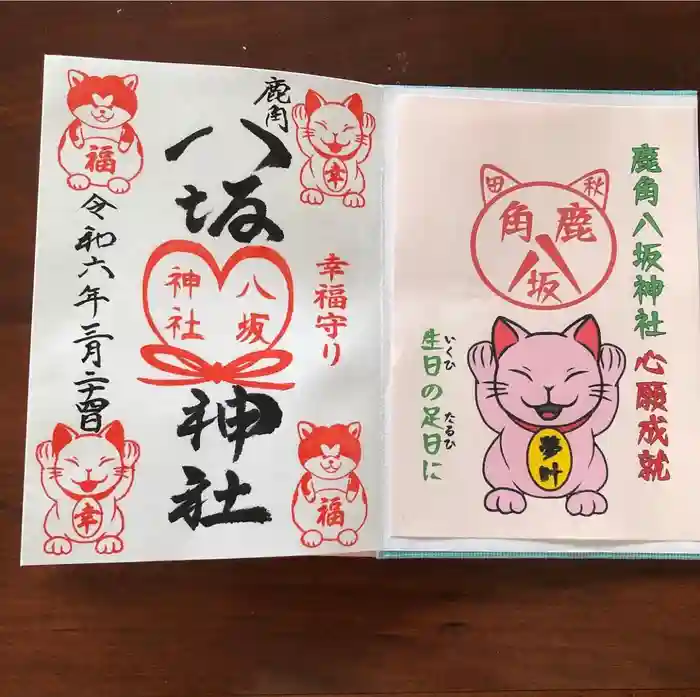 鹿角八坂神社 心願成就
秋田
鹿角
八坂
生日の足日に
いくひ
たるひ
夢叶
鹿角
八坂神社
八坂
神社
幸福守り
令和六年三月二十四日
福
幸
幸
福